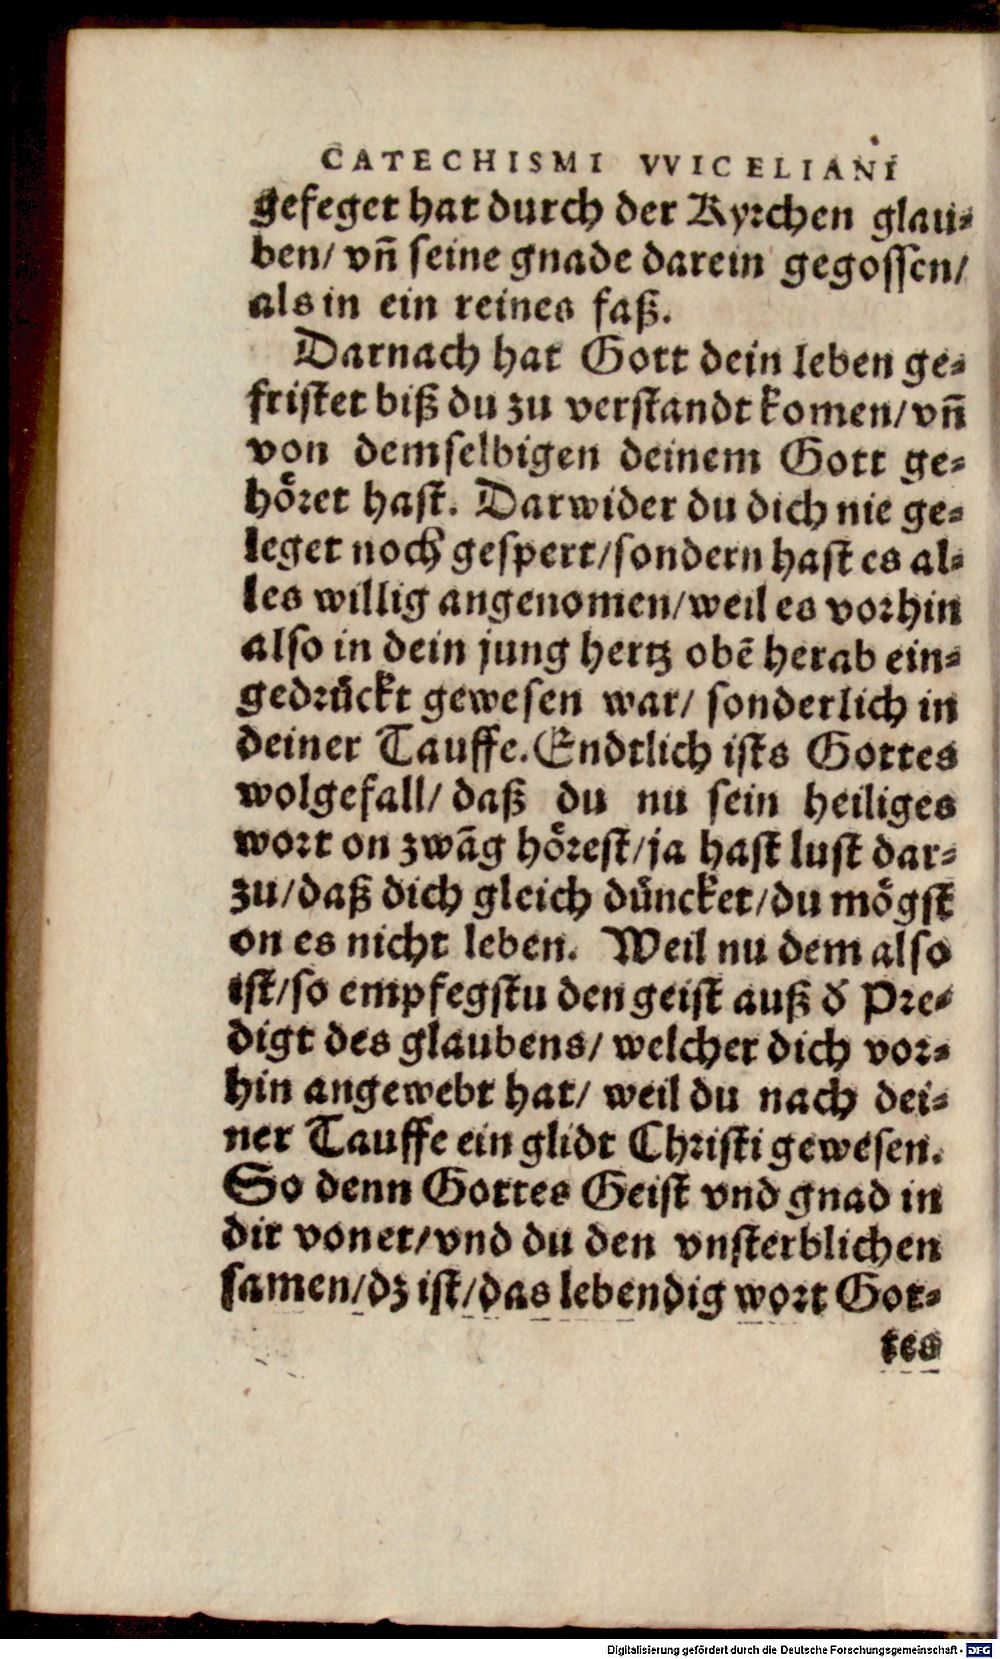 CATECHISMI VVICELIANI
gefeget hat durch der Kyrchen glau-
ben/ vñ seine gnade darein gegossen/
als in ein reines faß.
Darnach hat Gott dein leben ge-
fristet biß du zu verstandt komen/ vñ
von demselbigen deinem Gott ge-
hoͤret hast. Darwider du dich nie ge-
leget noch gespert/ sondern hast es al-
les willig angenomen/ weil es vorhin
also in dein jung hertz obē herab ein-
gedruͤckt gewesen war/ sonderlich in
deiner Tauffe. Endtlich ists Gottes
wolgefall/ daß du nu sein heiliges
wort on zwāg hoͤrest/ ja hast lust dar-
zu/ daß dich gleich duͤncket/ du moͤgst
on es nicht leben. Weil nu dem also
ist/ so empfegstu den geist auß d̕ Pre-
digt des glaubens/ welcher dich vor-
hin angewebt hat/ weil du nach dei-
ner Tauffe ein glidt Christi gewesen.
So denn Gottes Geist vnd gnad in
dir vonet/ vnd du den vnsterblichen
samen/ dz ist/ das lebendig wort Got-
tes
Digitalisierung gefördert durch die Deutsche Forschungsgemeinschaft - DFG